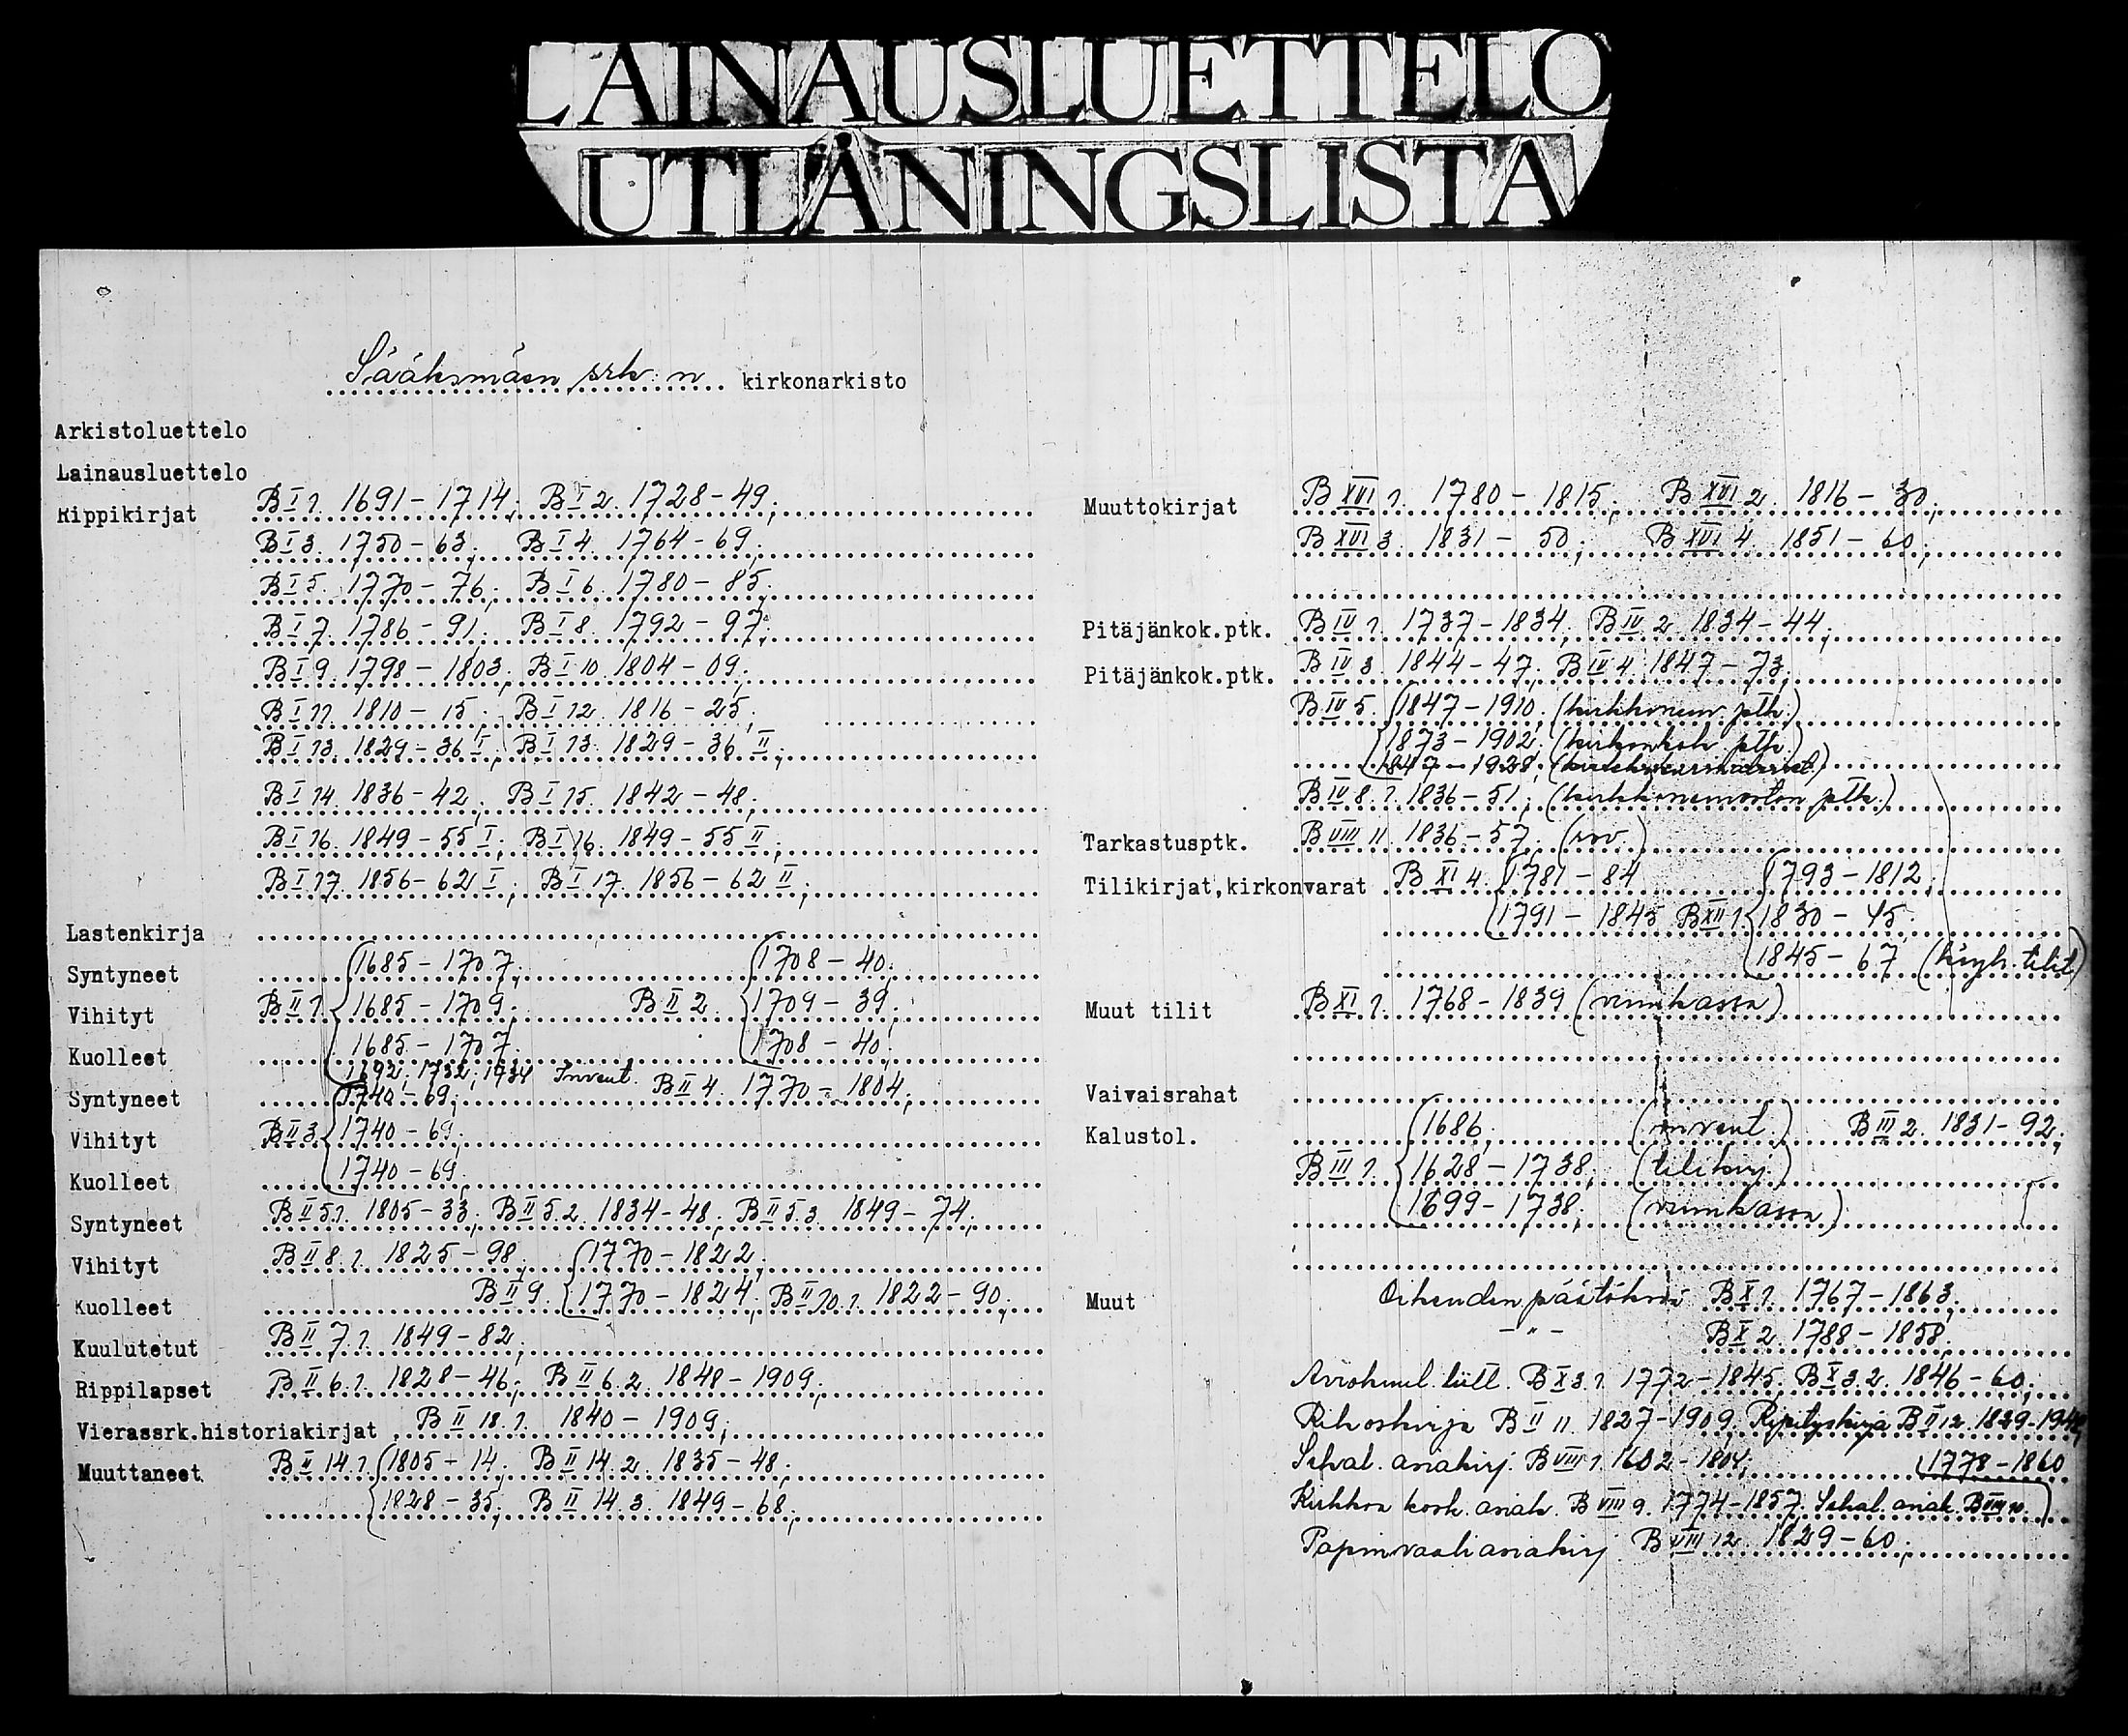 LAINAUSLUETTELO
UTLÅNINGSLISTA
Sääksmäen srk:n kirkonarkisto
Arkistoluettelo
Lainausluettelo
Rippikirjat B I 1. 1691-1714; B I 2. 1728-49;
B I 3. 1750-63; B I 4. 1764-69;
B I 5. 1770-76; B I 6. 1780-85;
B I 7. 1786-91; B I 8. 1792-97;
B I 9. 1798-1803; B I 10. 1804-09;
B I 11. 1810-15; B I 12. 1816-25;
B I 13. 1829-36 I; B I 13. 1829-36 II;
B I 14. 1836-42; B I 15. 1842-48;
B I 16. 1849-55 I; B I 16. 1849-55 II;
B I 17. 1856-62 I; B I 17. 1856-62 II;
Lastenkirja
Syntyneet 1685-1707; 1708-40;
Vihityt B II 1. 1685-1709; B II 2. 1709-39;
Kuolleet 1685-1707. 1708-40;
1692; 1732; 1734 Invent.
Syntyneet 1740-69; B II 4. 1770-1804;
Vihityt B II 3. 1740-69;
Kuolleet 1740-69.
Syntyneet B II 5.1. 1805-33; B II 5.2. 1834-48; B II 5.3. 1849-74;
Vihityt B II 8.1. 1825-98; 1770-1822;
Kuolleet B II 9. 1770-1824; B II 10.1. 1822-90;
Kuulutetut B II 7.1. 1849-82;
Rippilapset B II 6.1. 1828-46; B II 6.2. 1848-1909;
Vierassrk.historiakirjat B II 18.1. 1840-1909;
Muuttaneet B II 14.1. 1805-14; B II 14.2. 1835-48;
1828-35; B II 14.3. 1849-68;
Muuttokirjat B XVI 1. 1780-1815; B XVI 2. 1816-30;
B XVI 3. 1831-50; B XVI 4. 1851-60;
Pitäjänkok.ptk. B IV 1. 1737-1834; B IV 2. 1834-44;
Pitäjänkok.ptk. B IV 3. 1844-47; B IV 4. 1847-73;
B IV 5. 1847-1910; (kirkkoneuv. ptk.)
1873-1902; (kirkonkok. ptk.)
1847-1928;
B IV 8.1. 1836-51; (kirkkoneuvoston ptk.)
Tarkastusptk. B VIII 11. 1836-57; (rov.)
Tilikirjat,kirkonvarat B XI 4. 1781-84 1793-1812;
1791-1845 B XII 1. 1830-45.
1845-67 (köyh. tilit)
Muut tilit B XI 1. 1768-1839 (viinikassa)
Vaivaisrahat
Kalustol. 1686; (invent.) B III 2. 1831-92;
B III 1. 1628-1738; (tilikirj.)
1699-1738; (viinikassa)
Muut Oikeuden päätöksiä B X 1. 1767-1863;
- " - B X 2. 1788-1858;
Aviokuul. liitt. B X 3.1. 1772-1845; B X 3.2. 1846-60;
Rikoskirja B II 11. 1827-1909; Ripityskirja B II 12.
Sekal. asiakirj. B VIII 1. 1602-1804; 1778-1860
Kirkkoa kosk. asiak. B VIII 9. 1774-1857. Sekal. asiak. B VIII 10.
Papinvaaliasiakirj. B VIII 12. 1829-60;